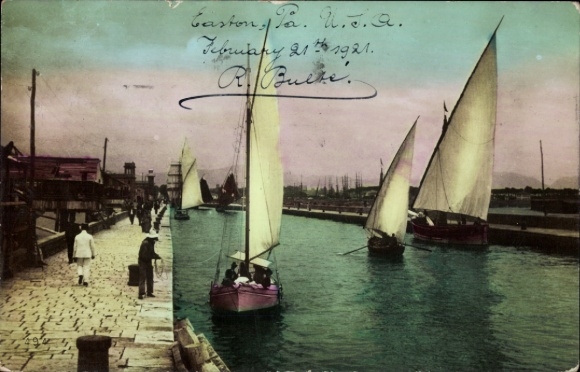 Easton, Pa. U.S.A.
February 21th 1921.